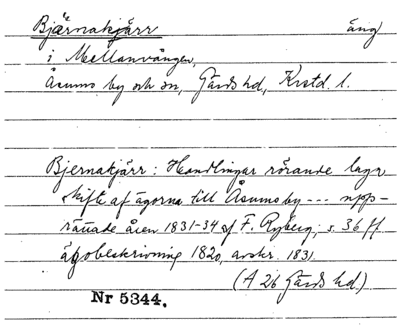 Bjärnakjärr äng
i Mellanvången,
Åsums by och sn, Gärds hd, Krstd. l.
Bjernakjärr: Handlingar rörande laga
skifte af ägorna till Åsums by --- upp-
rättade åren 1831-34 af F. Ryberg, s. 36 ff
ägobeskrivning 1820, avskr. 1831.
(A 26 Gärds hd.)
Nr 5344.